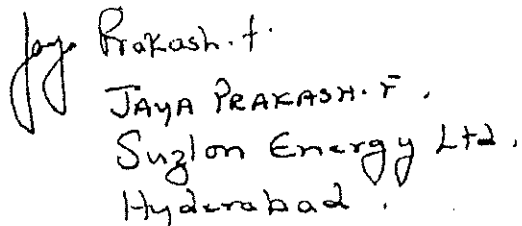 Jaya Prakash.f.
JAYA PRAKASH.F.
Suzlon Energy Ltd.
Hyderabad.